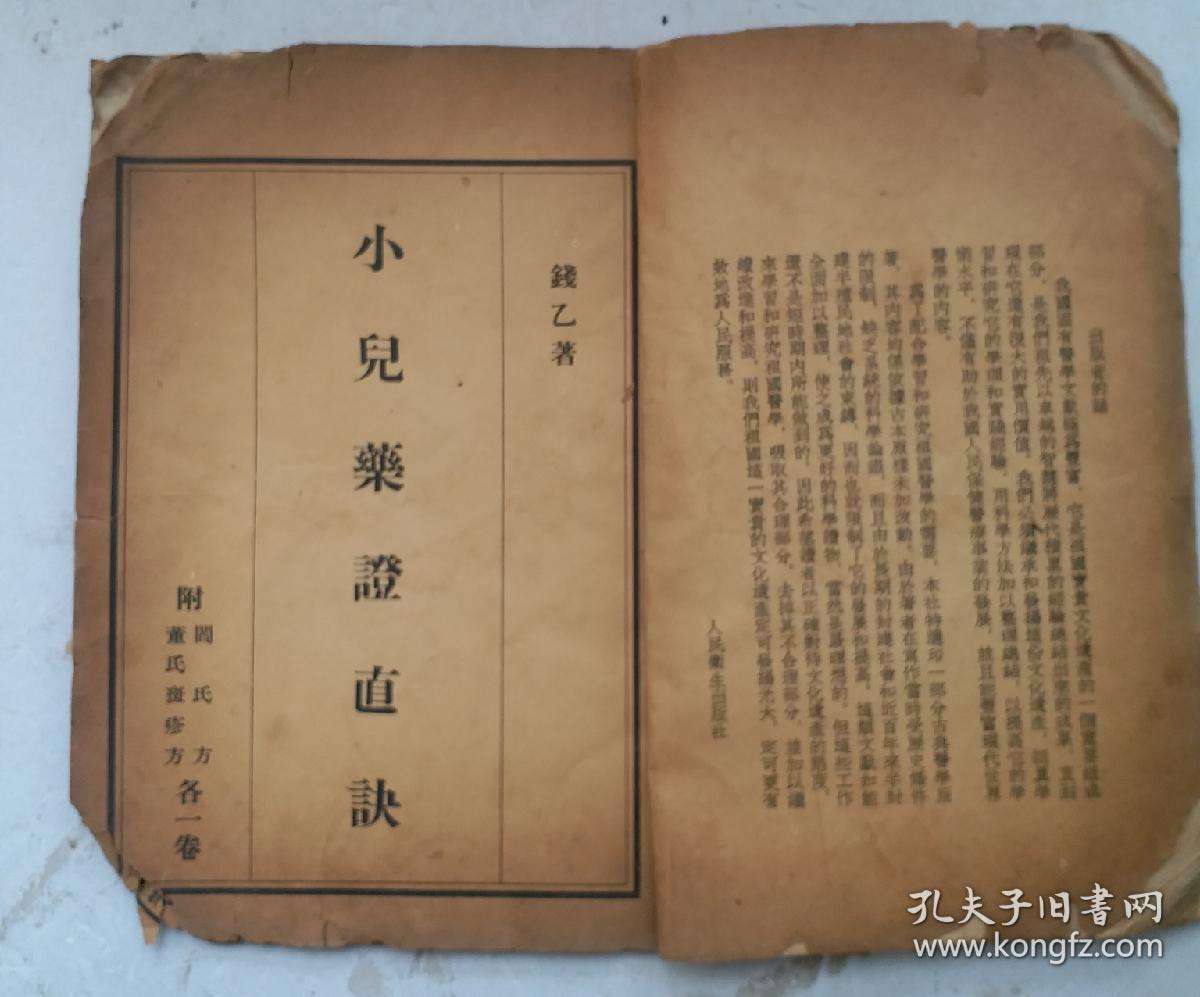 出版者的話
我國固有醫學文獻極爲豐富，它是祖國寶貴文化遺產的一個重要組成
部分，是我們祖先以卓越的智慧將歷代積累的經驗總結出來的成果，直到
現在它還有很大的實用價值。我們必須繼承和發揚這份文化遺產，認真學
習和研究它的學理和實踐經驗，用科學方法加以整理總結，以提高它的學
術水平，不僅有助於我國人民保健醫療事業的發展，並且能豐富現代世界
醫學的內容。
爲了配合學習和研究祖國醫學的需要，本社特選印一部分古典醫學原
著，其內容均保依據古本原樣未加改動。由於著者在寫作當時受歷史條件
的限制，缺乏系統的科學論證，而且由於長期的封建社會和近百年來半封
建半殖民地社會的束縛，因而也就限制了它的發展和提高。這類文獻如能
全面加以整理，使之成爲更好的科學讀物，當然是最理想的。但這些工作
還不是短時期內所能做到的。因此希望讀者以正確對待文化遺產的態度，
來學習和研究祖國醫學，吸取其合理部分，去掉其不合理部分，並加以繼
續改進和提高，則我們祖國這一寶貴的文化遺產定可發揚光大，定可更有
效地爲人民服務。
人民衛生出版社
錢乙著
小兒藥證直訣
附
閻氏方
董氏斑疹方
各一卷
孔夫子旧书网
www.kongfz.com